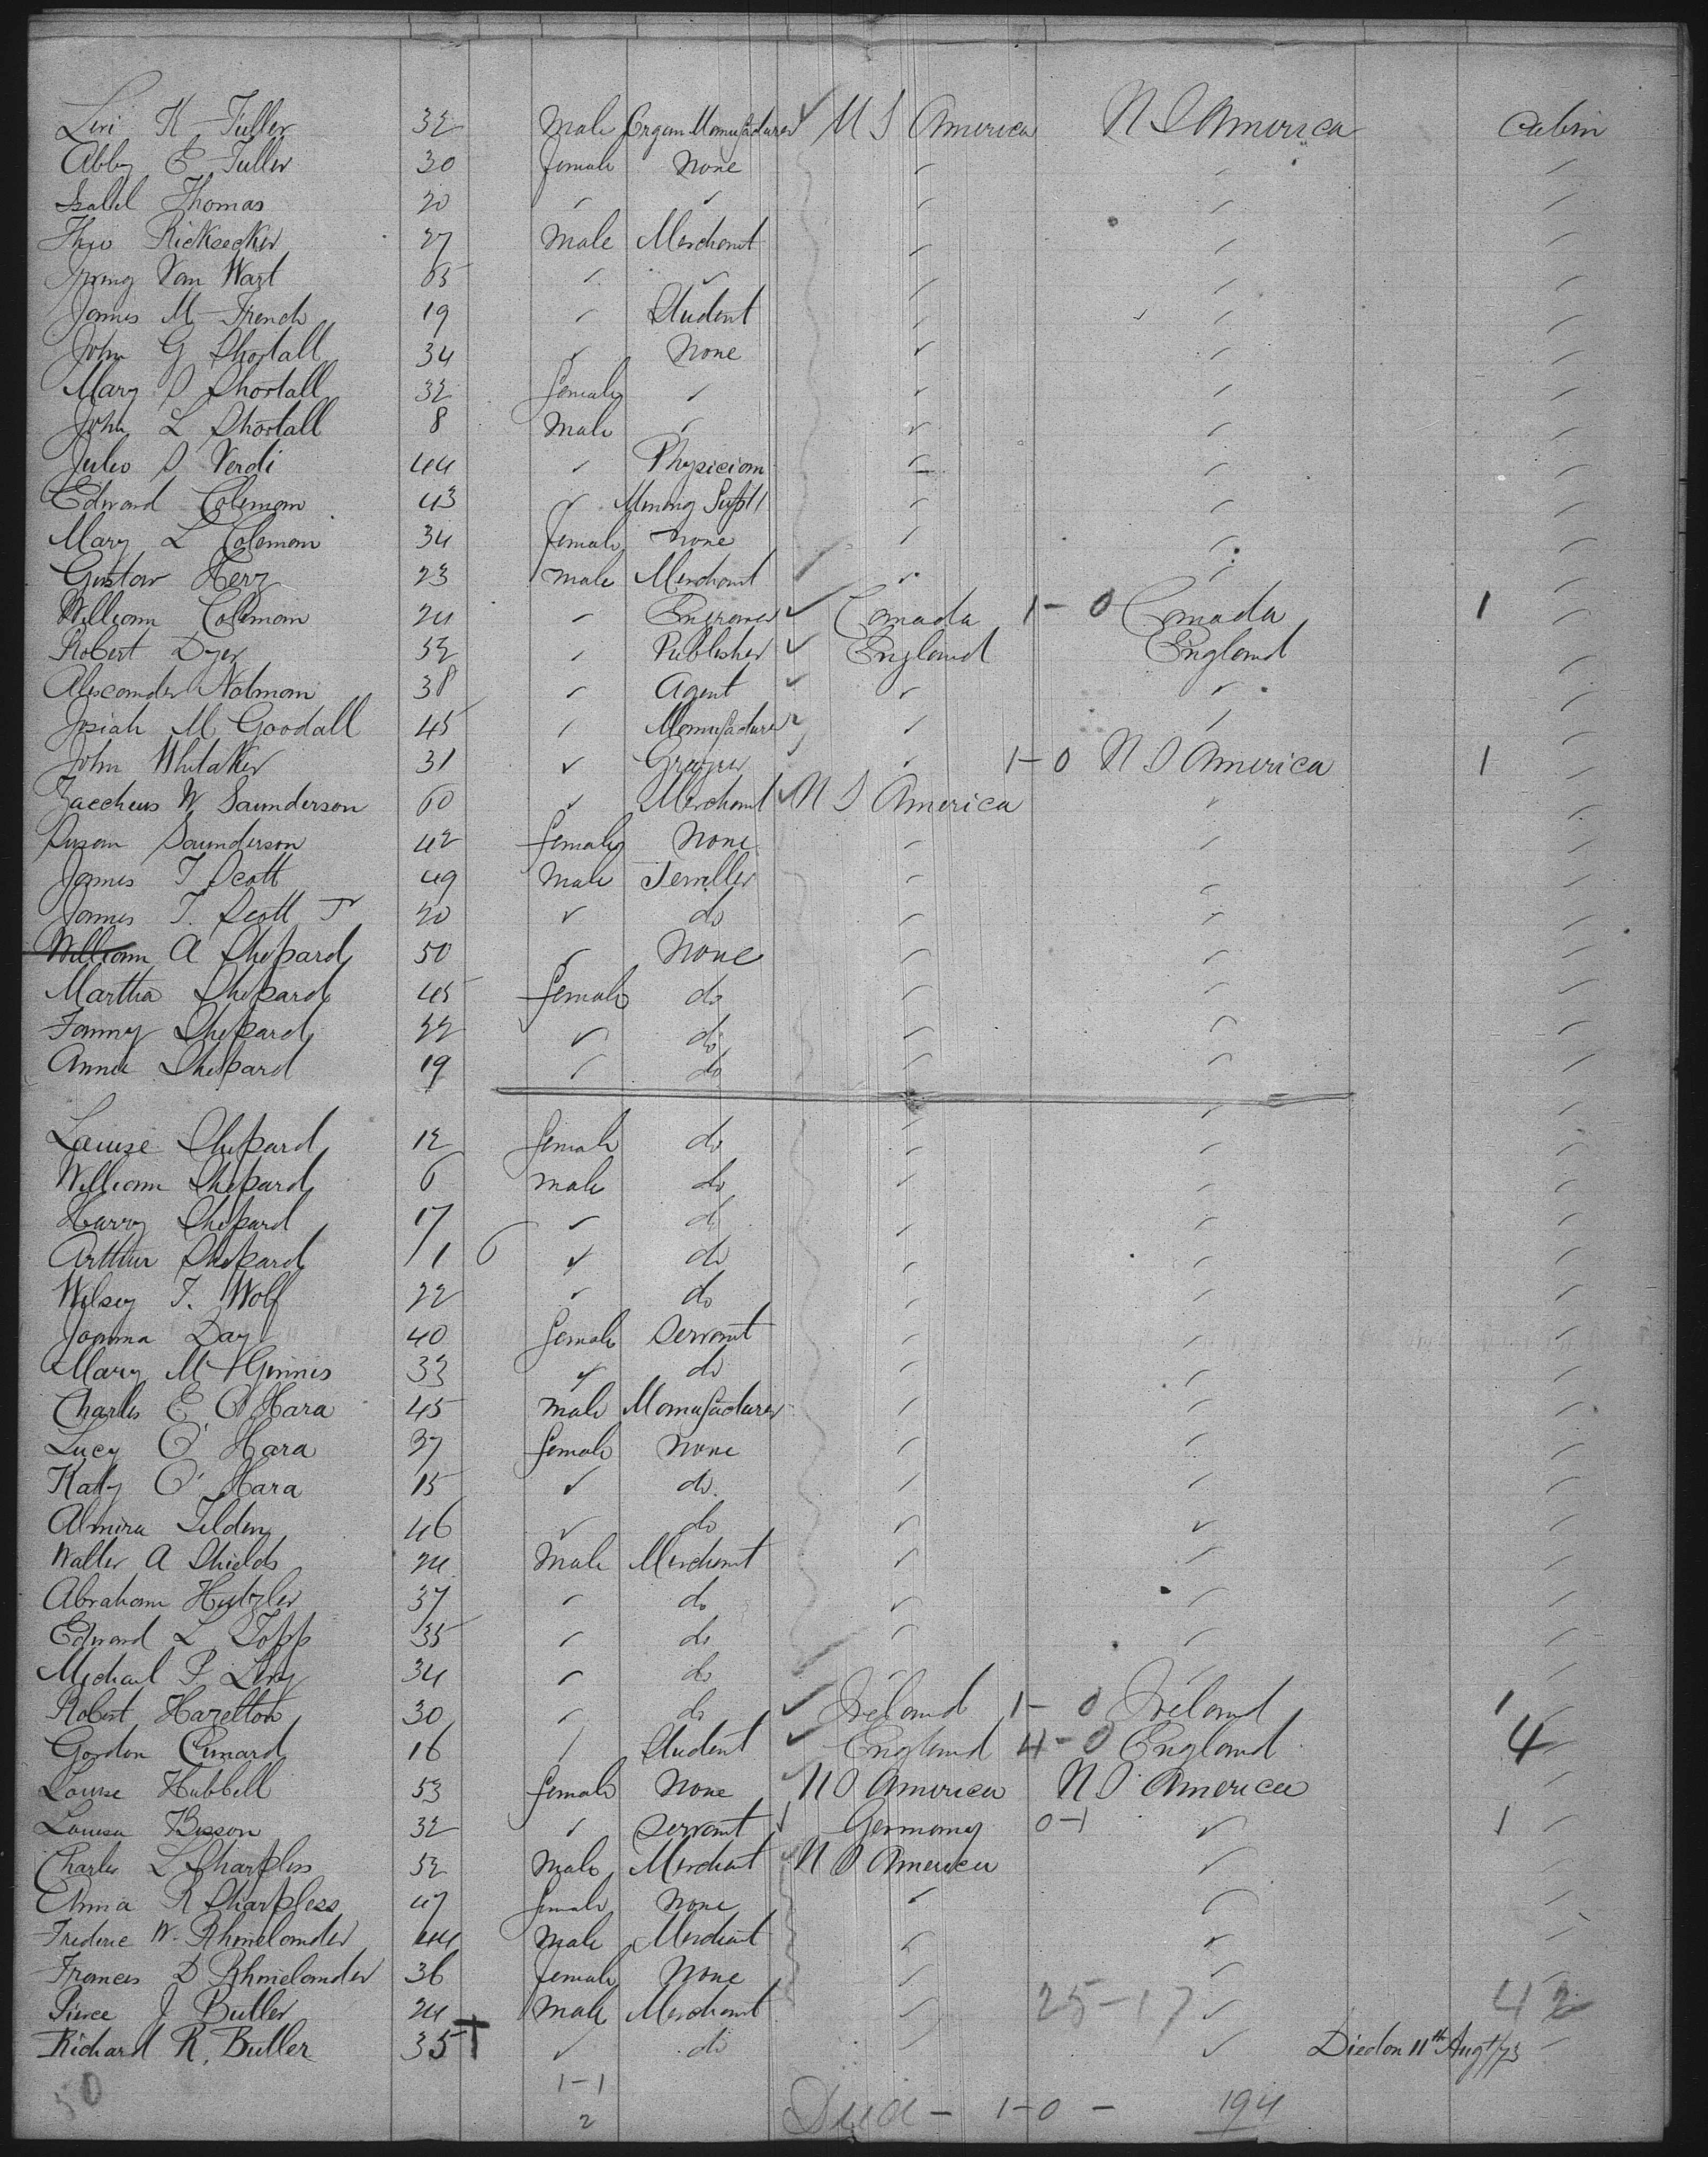 Levi K Fuller 32 Male Organ Manufacturer ✓ U S America U S America Cabin
Abby E Fuller 30 female None
Isabel Thomas 20
Theo Ricksecker 27 Male Merchant
Irving Van Wart 65
James M French 19 Student
John G Shortall 34 None
Mary S Shortall 32 female
John L Shortall 8 Male
Julio S Verdi 44 Physician
Edward Coleman 43 Mining Supt
Mary L Coleman 34 female none
Gustav Herz 23 male Merchant
William Coleman 24 Engraver ✓ Canada 1-0 Canada 1
Robert Dyer 52 Publisher ✓ England England
Alexander Notman 38 Agent ✓
Josiah M Goodall 45 Manufacturer
John Whitaker 31 1-0 U S America 1
Zaccheus W Saunderson 60 Merchant ✓ U S America
Susan Saunderson 42 female none
James T Scott 49 Male Jeweller
James T. Scott Jr 20 do
William A Shepard 50 None
Martha Shepard 45 female do
Fanny Shepard 22 do
Annie Shepard 19 do
Louise Shepard 12 female do
William Shepard 6 male do
Harry Shepard 17 do
Arthur Shepard 1 6 do
Wilsey T. Wolf 22 do
Joanna Day 40 female Servant
Mary McGinnis 33 do
Charles E O'Hara 45 male Manufacturer
Lucy O'Hara 37 female none
Katy O'Hara 15 do
Almira Tilden 46 do
Walter A Shields 24 Male Merchant
Abraham Hutzler 37 do
Edward L Topp 35 do
Michael P Levy 34 do
Robert Hazelton 30 do ✓ Ireland 1-0 Ireland 1
Gordon Cunard 16 Student ✓ England 4-0 England 4
Louise Hubbell 53 female None U S America U S America
Louisa Bisson 32 Servant Germany 0-1 1
Charles L Sharpless 52 Male Merchant U S America
Anna R Sharpless 47 female none
Frederic W. Rhinelander 44 Male Merchant
Frances D Rhinelander 36 female None
Pierce J Butler 24 Male Merchant 25-17 42
Richard R. Butler 35 + do Died on 11th Augt/73
50 1-1
2 Died - 1-0 - 194